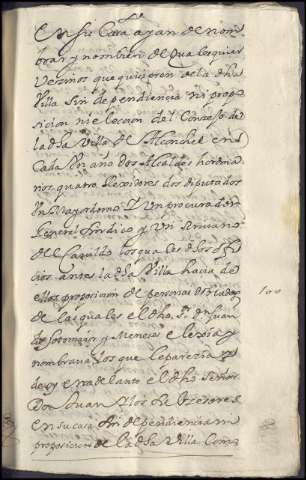 en su Casa ayan de nom
brar y nombren de qualesquier
Vezinos que quisieren de la dha
Villa sin dependiencia ni propo
sicion ni elecion del Conzejo de
la dha Villa de Alconchel en
Cada un año dos Alcaldes hordina
rios quatro Rexidores dos diputados
Un Mayordomo Y Un procurador
General Sindico y Un escrivano
del Cavildo los quales dhos ofi
cios antes la dha Villa hacia de
ellos proposicion de personas dobladas
de las quales el dho Sr Dn Juan
de Sotomaior y Meneses elexia y
nombrava los que le parecia y
de oy en adelante el dho Señor
Don Juan y los sus subcesores
en su casa sin dependencia ni
proposicion de la dha Villa Como
100